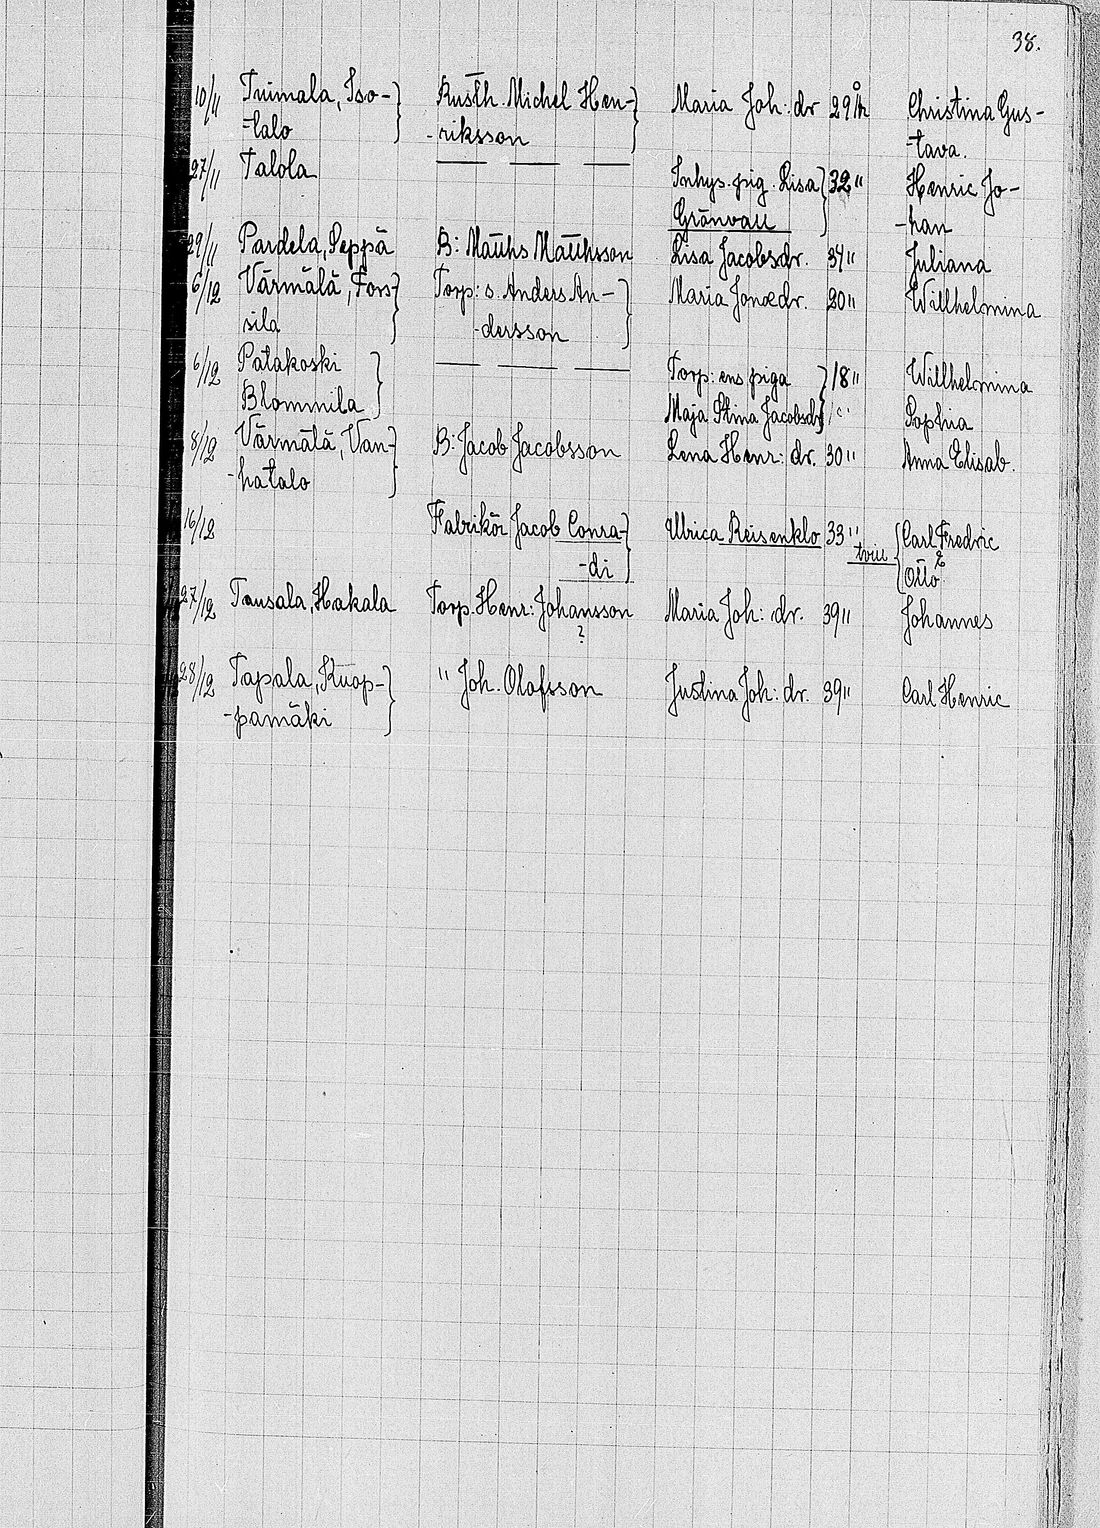 38.
10/11 Tuimala, Iso- Rusth. Michel Hen- Maria Joh: dr 29 år Christina Gus-
-talo -riksson -tava.
27/11 Talola — — — Inhys. pig. Lisa 32 " Henric Jo-
Grönvall -han
29/11 Pardela, Seppä B: Matths Matthsson Lisa Jacobsdr. 34 " Juliana
6/12 Värmälä, Fors- Torp: s. Anders An- Maria Jonædr. 20 " Willhelmina
sila -dersson
6/12 Patakoski — — — Torp: ens piga 18 " Willhelmina
Blommila Maja Stina Jacobsdr Sophia
8/12 Värmälä, Van- B: Jacob Jacobsson Lena Henr: dr. 30 " Anna Elisab.
-hatalo
16/12 Fabrikör Jacob Conra- Ulrica Reisenklo 33 " tvill Carl Fredric
-di & Otto
27/12 Tausala, Hakala Torp. Henr: Johansson Maria Joh: dr. 39 " Johannes
?
28/12 Tapala, Kuop- " Joh. Olofsson Justina Joh: dr. 39 " Carl Henric
-pamäki